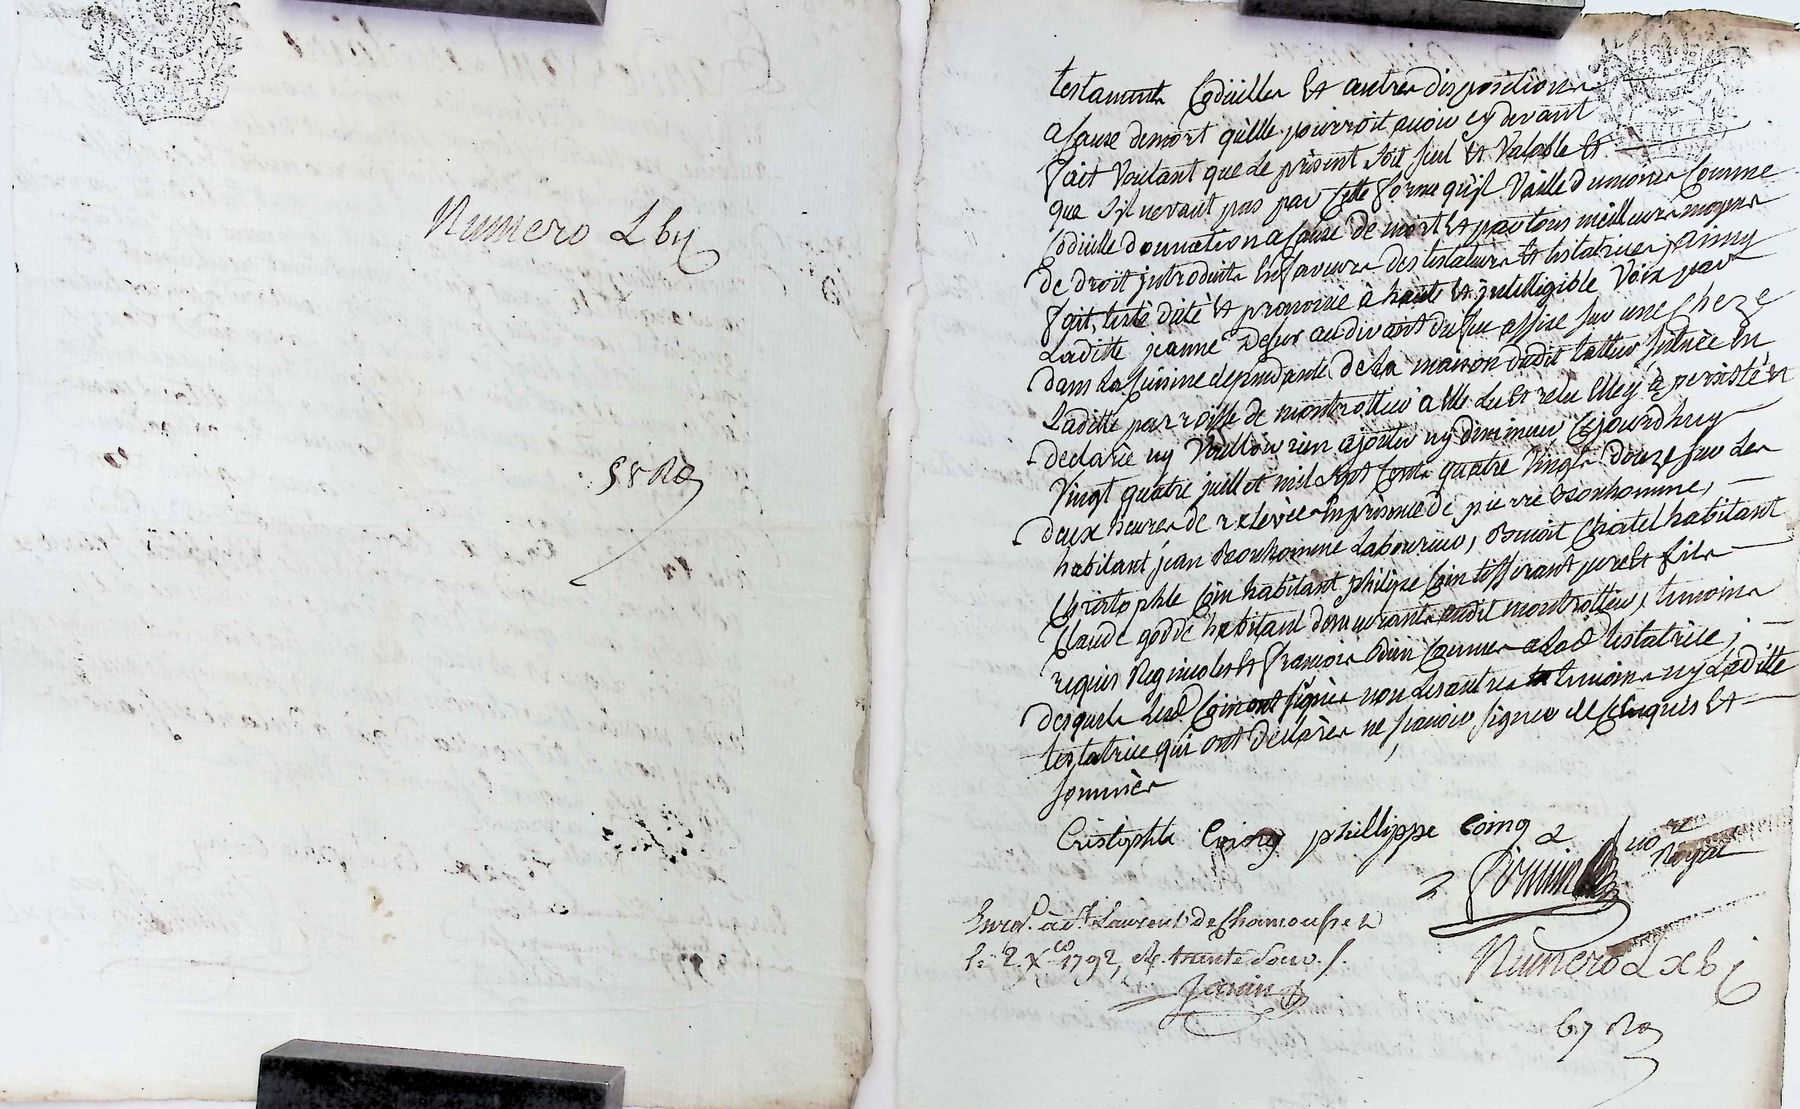 Numero Lbij
58 Ro
testaments Codicilles Et autres dispositions
a Cause demort qu'elle pourroit avoir cy devant
fait Voulant que Le présent soit seul Et Valable Et
que s'il nevaut pas par Cette forme qu'il Vaille dumoins Comme
Codicille donnation a Cause de mort Et par tous meilleurs moyens
de droit introduits En faveurs des testateurs Et testatrices, ainsy
fait, testé dicté Et prononcé à haute Et intelligible Voix par
Laditte jeanne audevant du feu assise sur une Cheze
dans La Cuisine dependante de La maison dudit situèe En
Laditte parroisse de montrottier à Elle Lu Et relu Elle y à persisté Et
declaré ny Vouloir rien ajouter ny diminuer Cejourd'huy
Vingt quatre juillet mil Sept Cents quatre Vingts douze sur Les
deux heures de relevée En présence de pierre Bonhomme,
habitant jean Bonhomme Laboureur, Benoit Chatel habitant
Christophle Coin habitant philipe Coin père Et fils
Claude habitant demeurants audit montrottier, temoins
requis Regnicoles Et françois bien Connus a Lad testatrice;
desquels Lesd Coin ont signés non Les autres temoins ny Laditte
testatrice qui ont déclarés ne sçavoir signer de Ce Enquis Et
sommés
Cristophle Coing phillippe Coing
no re Royal
Enreg. à St Laurent de Chamousset
Le 2 Xbre 1792, R. trente Sous.
Janin
Numero Lxbj
67 Ro